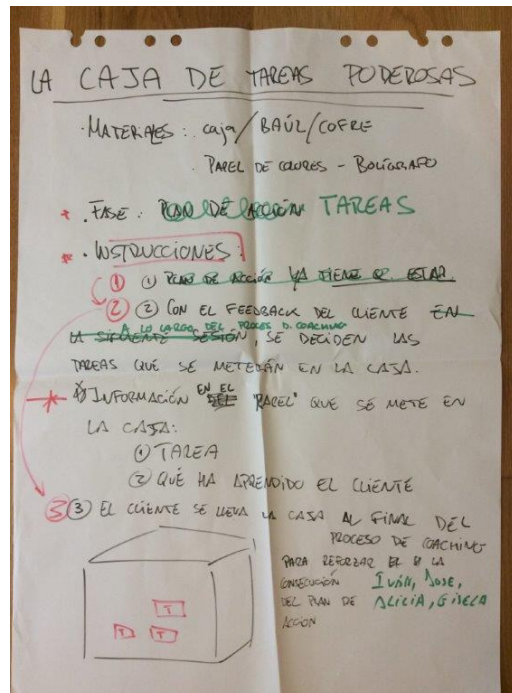 LA CAJA DE TAREAS PODEROSAS
· MATERIALES: caja/BAÚL/COFRE
PAPEL DE COLORES - BOLÍGRAFO
* · FASE: PLAN DE ACCIÓN TAREAS
* · INSTRUCCIONES:
① ① PLAN DE ACCIÓN YA TIENE Q. ESTAR.
② ② CON EL FEEDBACK DEL CLIENTE EN
A LO LARGO DEL PROCES D. COACHING
LA SIGUIENTE SESIÓN, SE DECIDEN LAS
TAREAS QUE SE METERÁN EN LA CAJA.
* INFORMACIÓN EN EL DEL "PAPEL" QUE SE METE EN
LA CAJA:
① TAREA
② QUÉ HA APRENDIDO EL CLIENTE
3 ③ EL CLIENTE SE LLEVA LA CAJA AL FINAL DEL
PROCESO DE COACHING
PARA REFORZAR LA
CONSECUCIÓN Iván, Jose,
DEL PLAN DE ALICIA, GISELA
ACCIÓN
T
T T